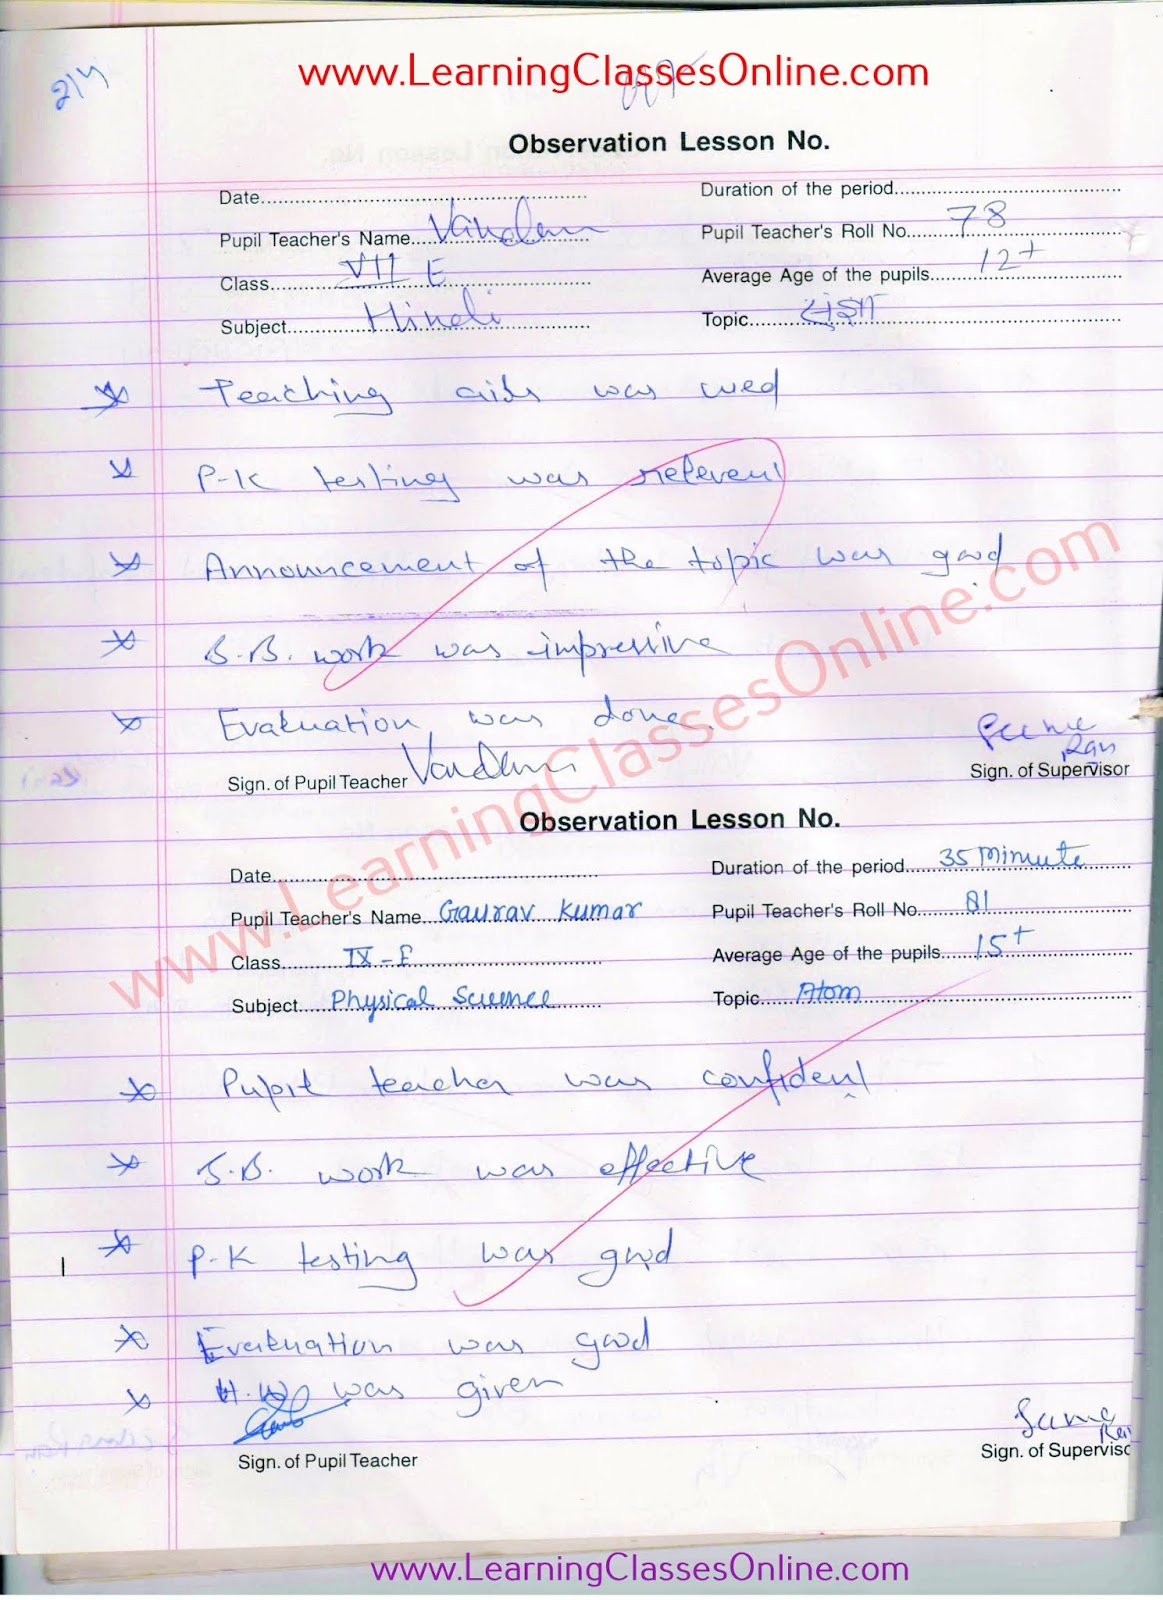 www.LearningClassesOnline.com
2/4
Observation Lesson No.
Date
Duration of the period
Pupil Teacher's Name Vandana
Pupil Teacher's Roll No. 78
Class VII E
Average Age of the pupils 12+
Subject Hindi
Topic संज्ञा
Teaching aids was used
P-K testing was relevent
Announcement of the topic was good
B.B. work was impressive
Evaluation was done.
Sign. of Pupil Teacher Vandana
Sign. of Supervisor
www.LearningClassesOnline.com
Observation Lesson No.
Date
Duration of the period 35 Minute
Pupil Teacher's Name Gaurav Kumar
Pupil Teacher's Roll No. 81
Class IX-E
Average Age of the pupils 15+
Subject Physical Science
Topic Atom
Pupil teacher was confident
B.B. work was effective
P-K testing was good
Evaluation was good
H.W was given
Sign. of Pupil Teacher
Sign. of Superviso
www.LearningClassesOnline.com